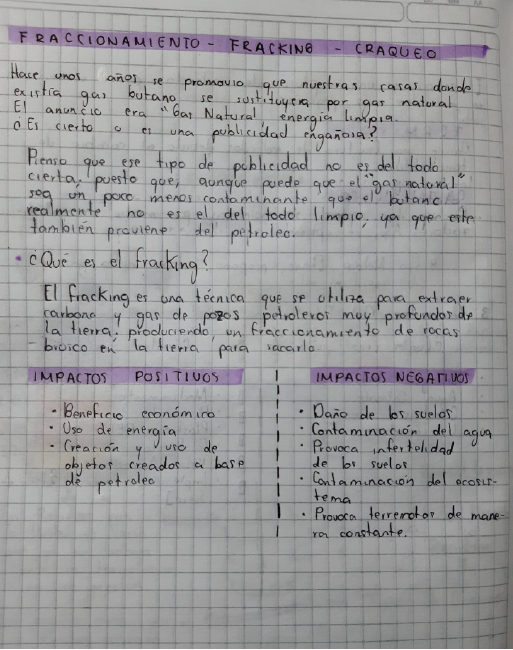 FRACCIONAMIENTO - FRACKING - CRAQUEO
Hace unos años se promovio que nuestras casas donde
existía gas butano se sustituyera por gas natural
El anuncio era "Gas Natural, energía limpia.
¿Es cierto o es una publicidad engañosa?
Pienso que ese tipo de publicidad no es del todo
cierta, puesto que, aunque puede que el "gas natural"
sea un poco menos contaminante que el butano
realmente no es el del todo limpio, ya que este
también proviene del petroleo.
• ¿Qué es el fracking?
El fracking es una técnica que se utiliza para extraer
carbono y gas de pozos petroleros muy profundos de
la tierra, produciendo un fraccionamiento de rocas
brusco en la tierra para sacarlo
IMPACTOS POSITIVOS
• Beneficio económico
• Uso de energía
• Creación y uso de
objetos creados a base
de petroleo
IMPACTOS NEGATIVOS
• Daño de los suelos
• Contaminación del agua
• Provoca infertelidad
de los suelos
• Contaminación del ecosis-
tema
• Provoca terremotos de mane-
ra constante.